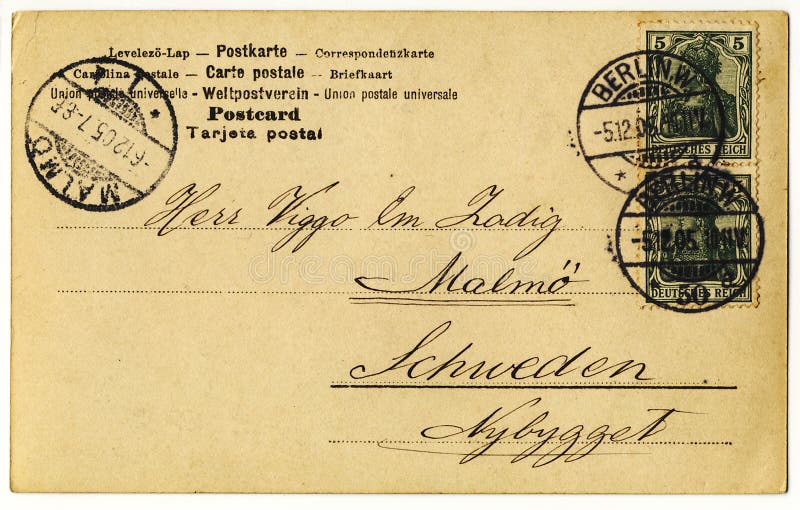 Levelezö-Lap — Postkarte — Correspondenzkarte
Carolina postale — Carte postale — Briefkaart
Union postale universelle - Weltpostverein - Union postale universale
Postcard
Tarjeta postal
MALMÖ
6.12.05.7-8F
5 5
DEUTSCHES REICH
BERLIN.W.
-5.12.05. 10-11V.
BERLIN.W.
-5.12.05. 10-11V.
DEUTSCHES REICH
Herr Viggo Em Zadig
Malmö
Schweden
Nybygget